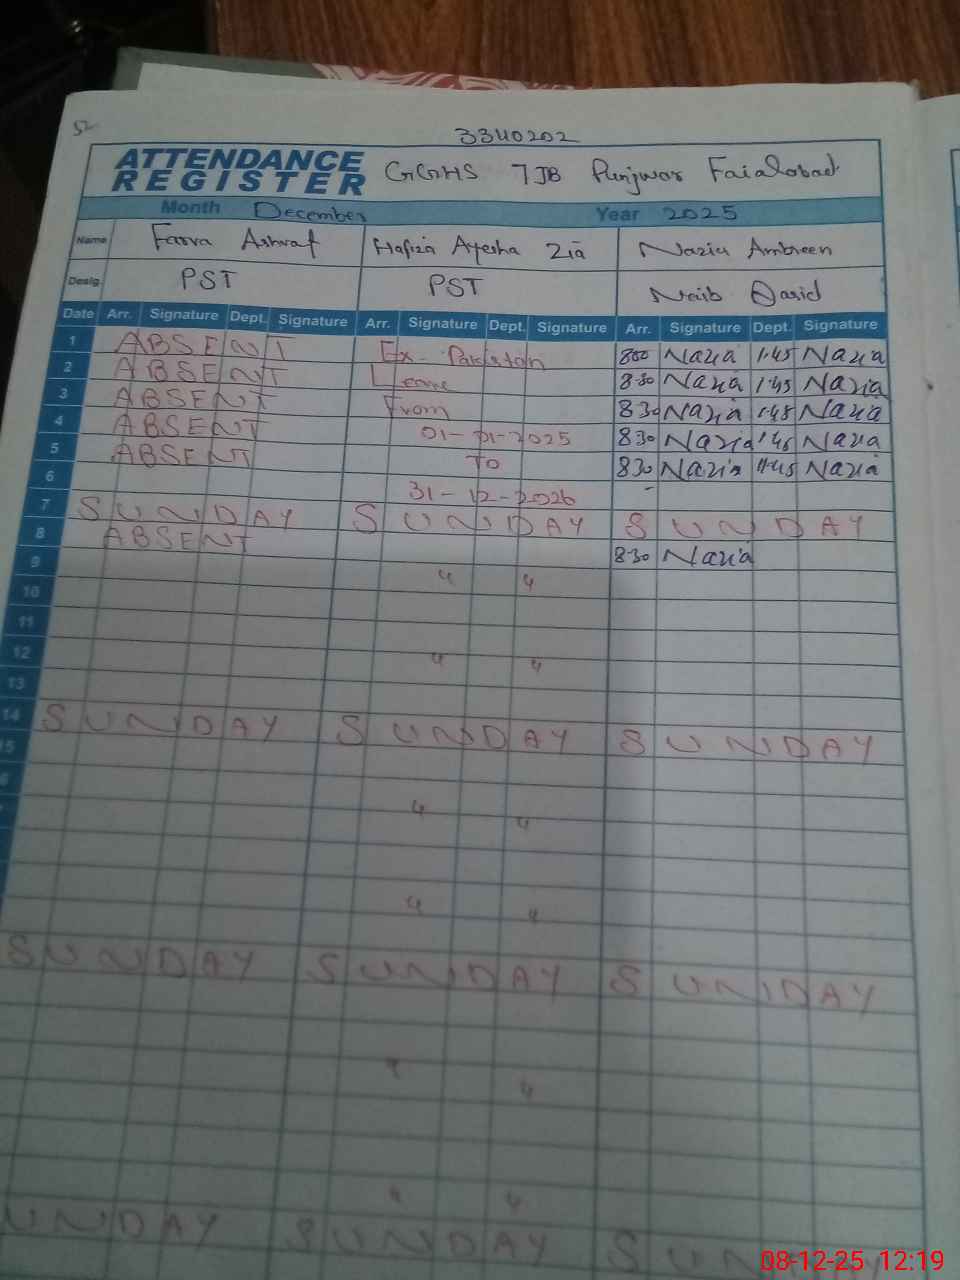 52
3340202
ATTENDANCE REGISTER GGHS 7JB Punjwar Faialabad
Month December Year 2025
Name Farva Ashraf Hafiza Ayesha Zia Nazia Ambreen
Desig. PST PST Naib Qasid
Date Arr. Signature Dept. Signature Arr. Signature Dept. Signature Arr. Signature Dept. Signature
1 ABSENT Ex-Pakistan 800 Nazia 1.45 Nazia
2 ABSENT Leave 8.30 Nazia 1.45 Nazia
3 ABSENT From 830 Nazia 1.45 Nazia
4 ABSENT 01-01-2025 830 Nazia 1.45 Nazia
5 ABSENT To 830 Nazia 11.45 Nazia
6 31-12-2026 -
7 SUNDAY SUNDAY SUNDAY
8 ABSENT 8.30 Nazia
9 " "
10
11
12 " "
13
14 SUNDAY SUNDAY SUNDAY
15
" "
" "
SUNDAY SUNDAY SUNDAY
" "
" "
UNDAY SUNDAY SUNDAY
08-12-25 12:19